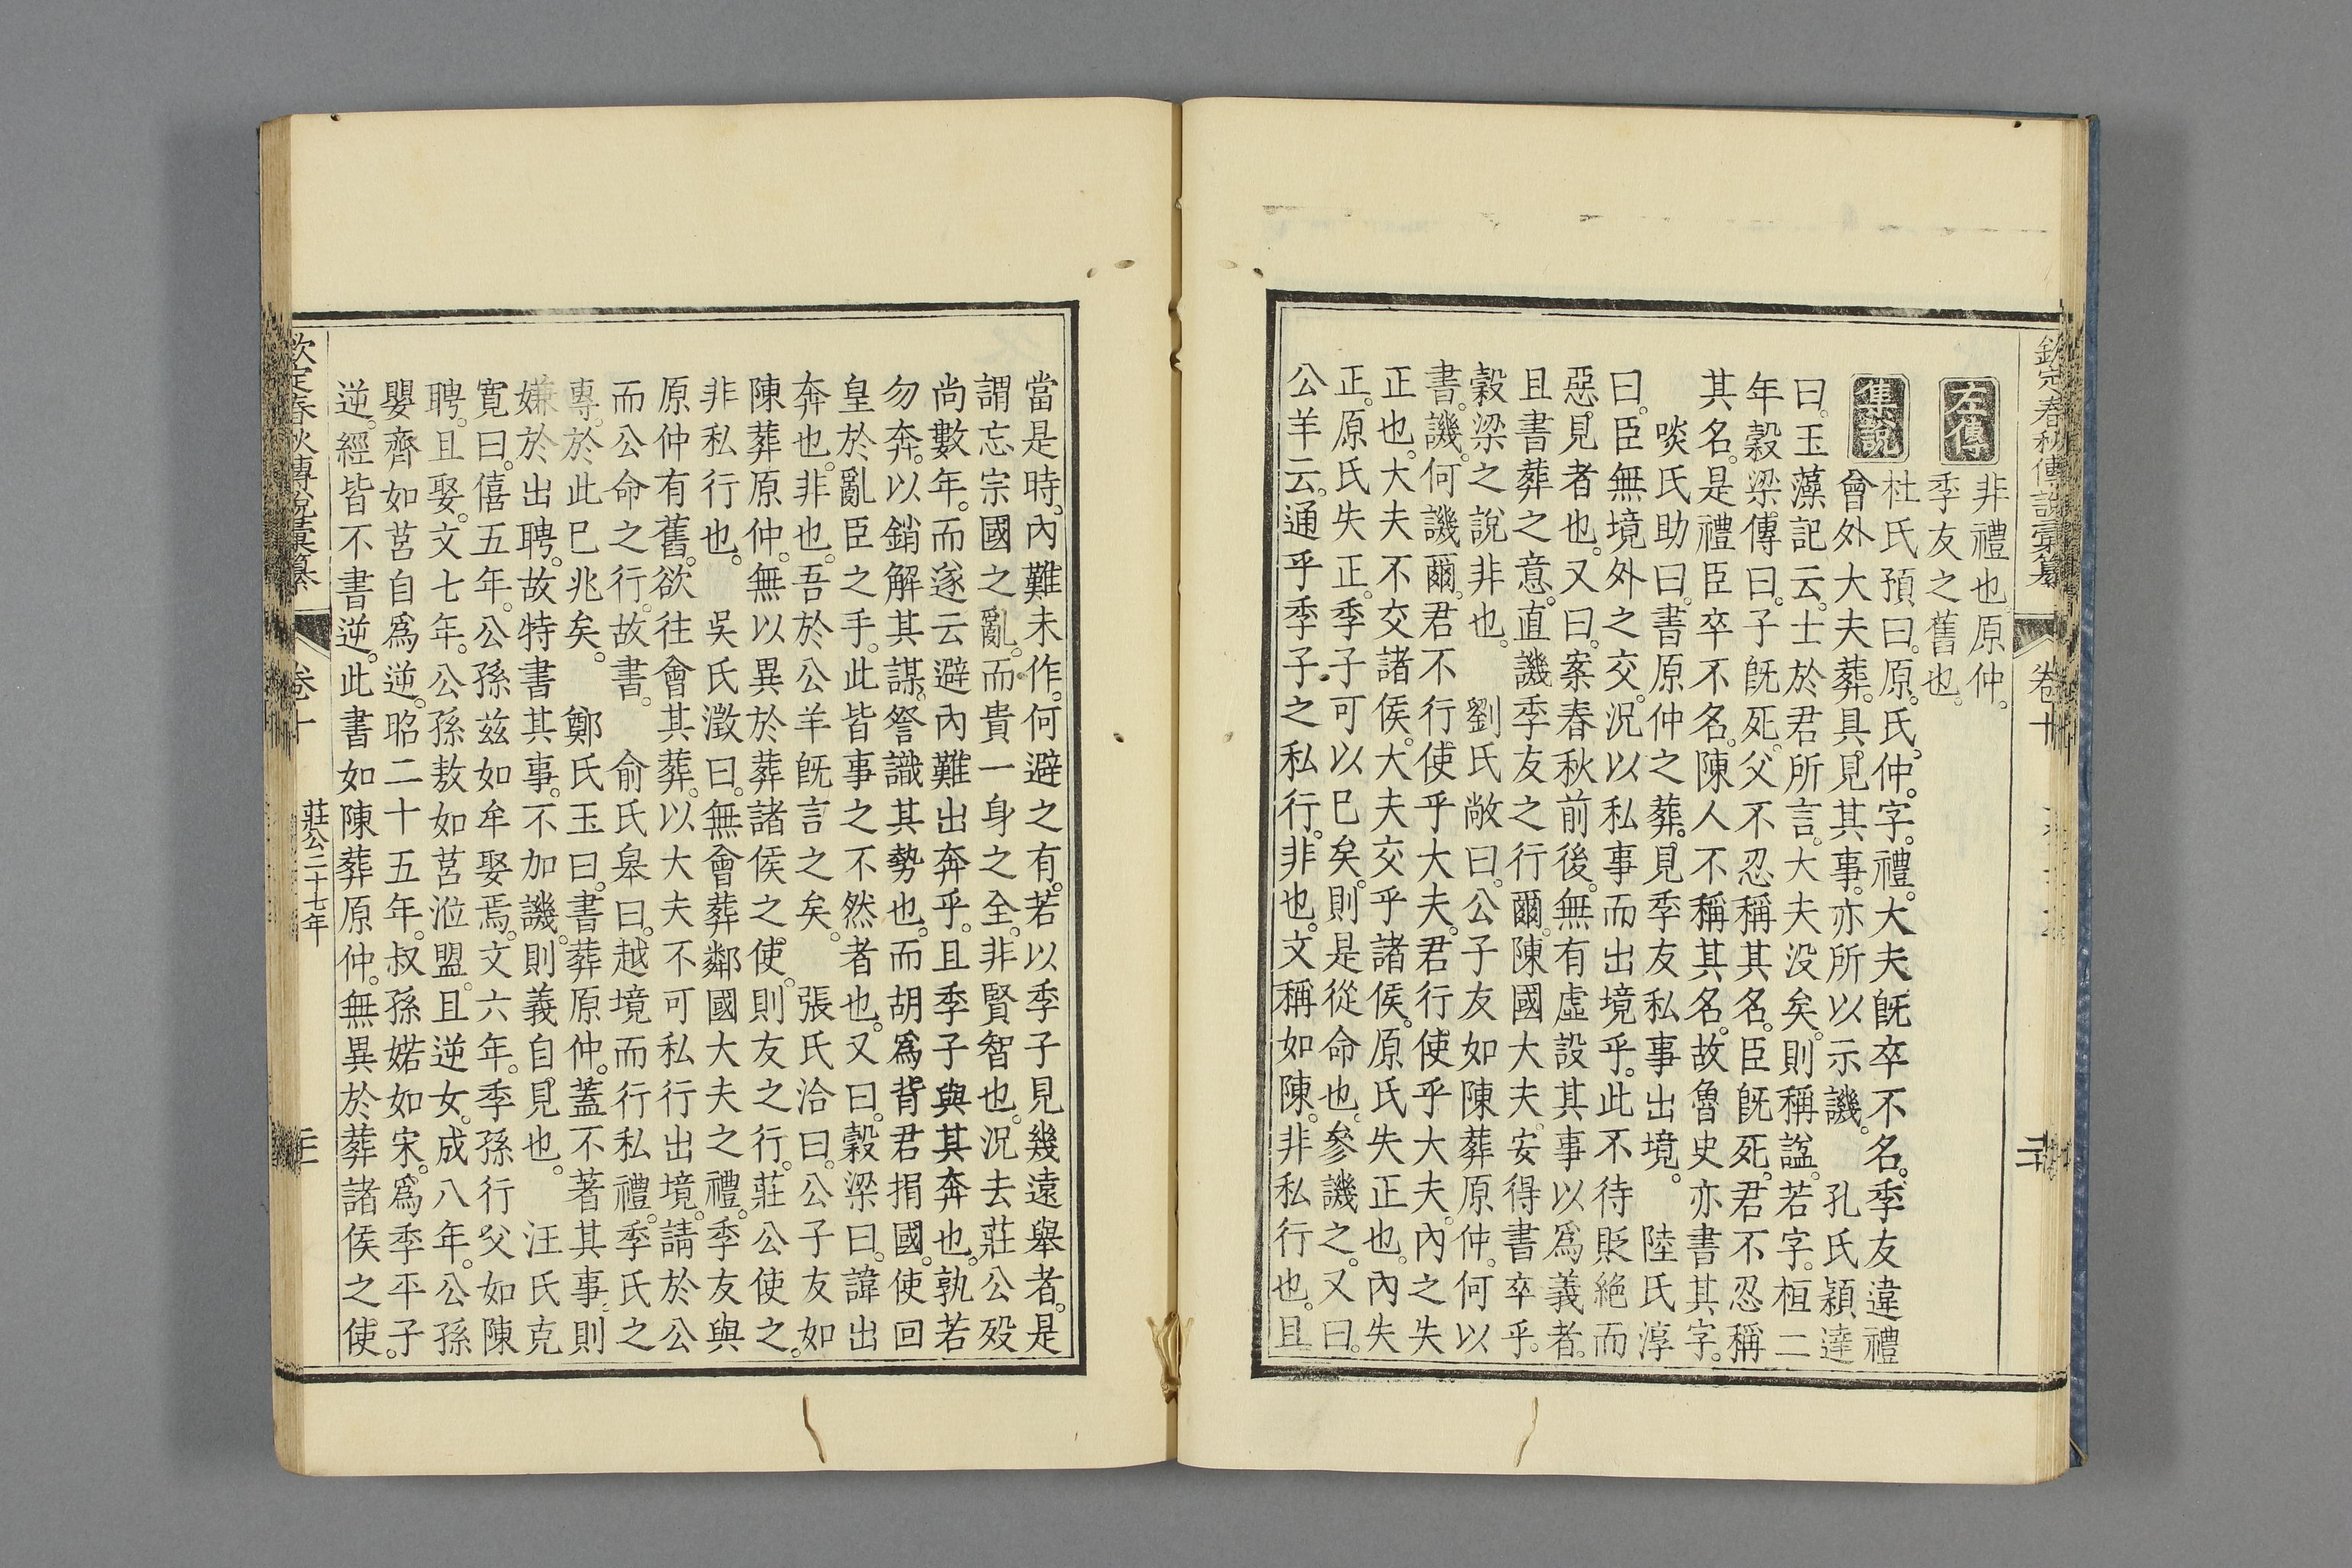 欽定春秋傳說彙纂 卷十
左傳
非禮也原仲。
季友之舊也。
集說
杜氏預曰。原。氏。仲。字。禮。大夫旣卒不名。季友違禮
會外大夫葬。具見其事。亦所以示譏。 孔氏穎達
曰。玉藻記云。士於君所言。大夫没矣。則稱諡。若字。桓二
年穀梁傳曰。子旣死。父不忍稱其名。臣旣死。君不忍稱
其名。是禮臣卒不名。陳人不稱其名。故魯史亦書其字。
啖氏助曰。書原仲之葬。見季友私事出境。 陸氏淳
曰。臣無境外之交。況以私事而出境乎。此不待貶絶而
惡。見者也。又曰。案春秋前後。無有虛設其事以爲義者。
且書葬之意。直譏季友之行爾。陳國大夫。安得書卒乎。
穀梁之說非也。 劉氏敞曰。公子友如陳葬原仲。何以
書。譏。何譏爾。君不行使乎大夫。君行使乎大夫。內之失
正也。大夫不交諸侯。大夫交乎諸侯。原氏失正也。內失
正。原氏失正。季子可以已矣。則是從命也。參譏之。又曰。
公羊云。通乎季子之私行。非也。文稱如陳。非私行也。且
當是時。內難未作。何避之有。若以季子見幾遠舉者。是
謂忘宗國之亂。而貴一身之全。非賢智也。況去莊公殁
尚數年。而遂云避內難出奔乎。且季子與其奔也。孰若
勿奔。以銷解其謀。詧識其勢也。而胡爲背君捐國。使回
皇於亂臣之手。此皆事之不然者也。又曰。穀梁曰。諱出
奔也。非也。吾於公羊旣言之矣。 張氏洽曰。公子友如
陳葬原仲。無以異於葬諸侯之使。則友之行。莊公使之。
非私行也。 吳氏澂曰。無會葬鄰國大夫之禮。季友與
原仲有舊。欲往會其葬。以大夫不可私行出境。請於公
而公命之行。故書。 俞氏皋曰。越境而行私禮。季氏之
專。於此巳兆矣。 鄭氏玉曰。書葬原仲。蓋不著其事。則
嫌於出聘。故特書其事。不加譏。則義自見也。 汪氏克
寬曰。僖五年。公孫兹如牟娶焉。文六年。季孫行父如陳
聘。且娶。文七年。公孫敖如莒涖盟。且逆女。成八年。公孫
嬰齊如莒自爲逆。昭二十五年。叔孫婼如宋。爲季平子
逆。經皆不書逆。此書如陳葬原仲。無異於葬諸侯之使。
欽定春秋傳說彙纂 卷十 莊公二十七年